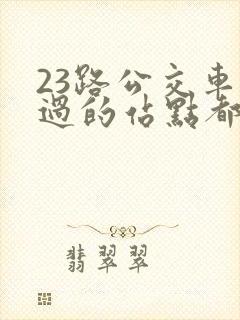 23路公交車
過的佔點都
翡翠翠